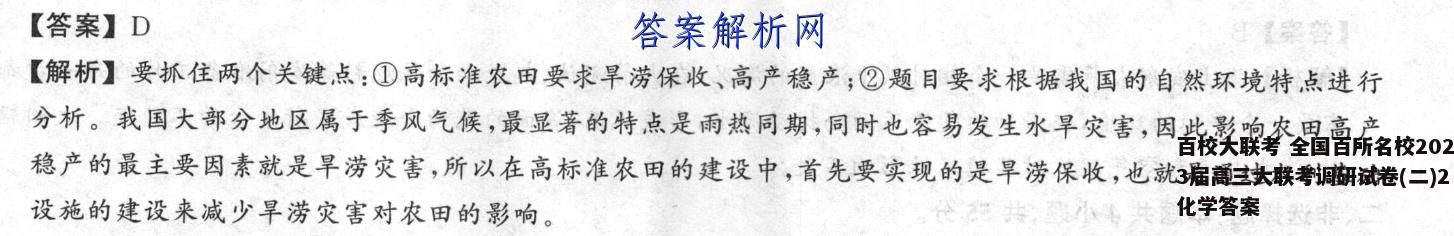 【答案】D
答案解析网
【解析】要抓住两个关键点:①高标准农田要求旱涝保收、高产稳产;②题目要求根据我国的自然环境特点进行
分析。我国大部分地区属于季风气候,最显著的特点是雨热同期,同时也容易发生水旱灾害,因此影响农田高产
稳产的最主要因素就是旱涝灾害,所以在高标准农田的建设中,首先要实现的是旱涝保收,也就
设施的建设来减少旱涝灾害对农田的影响。
百校大联考 全国百所名校202
3届高三大联考调研试卷(二)2
化学答案